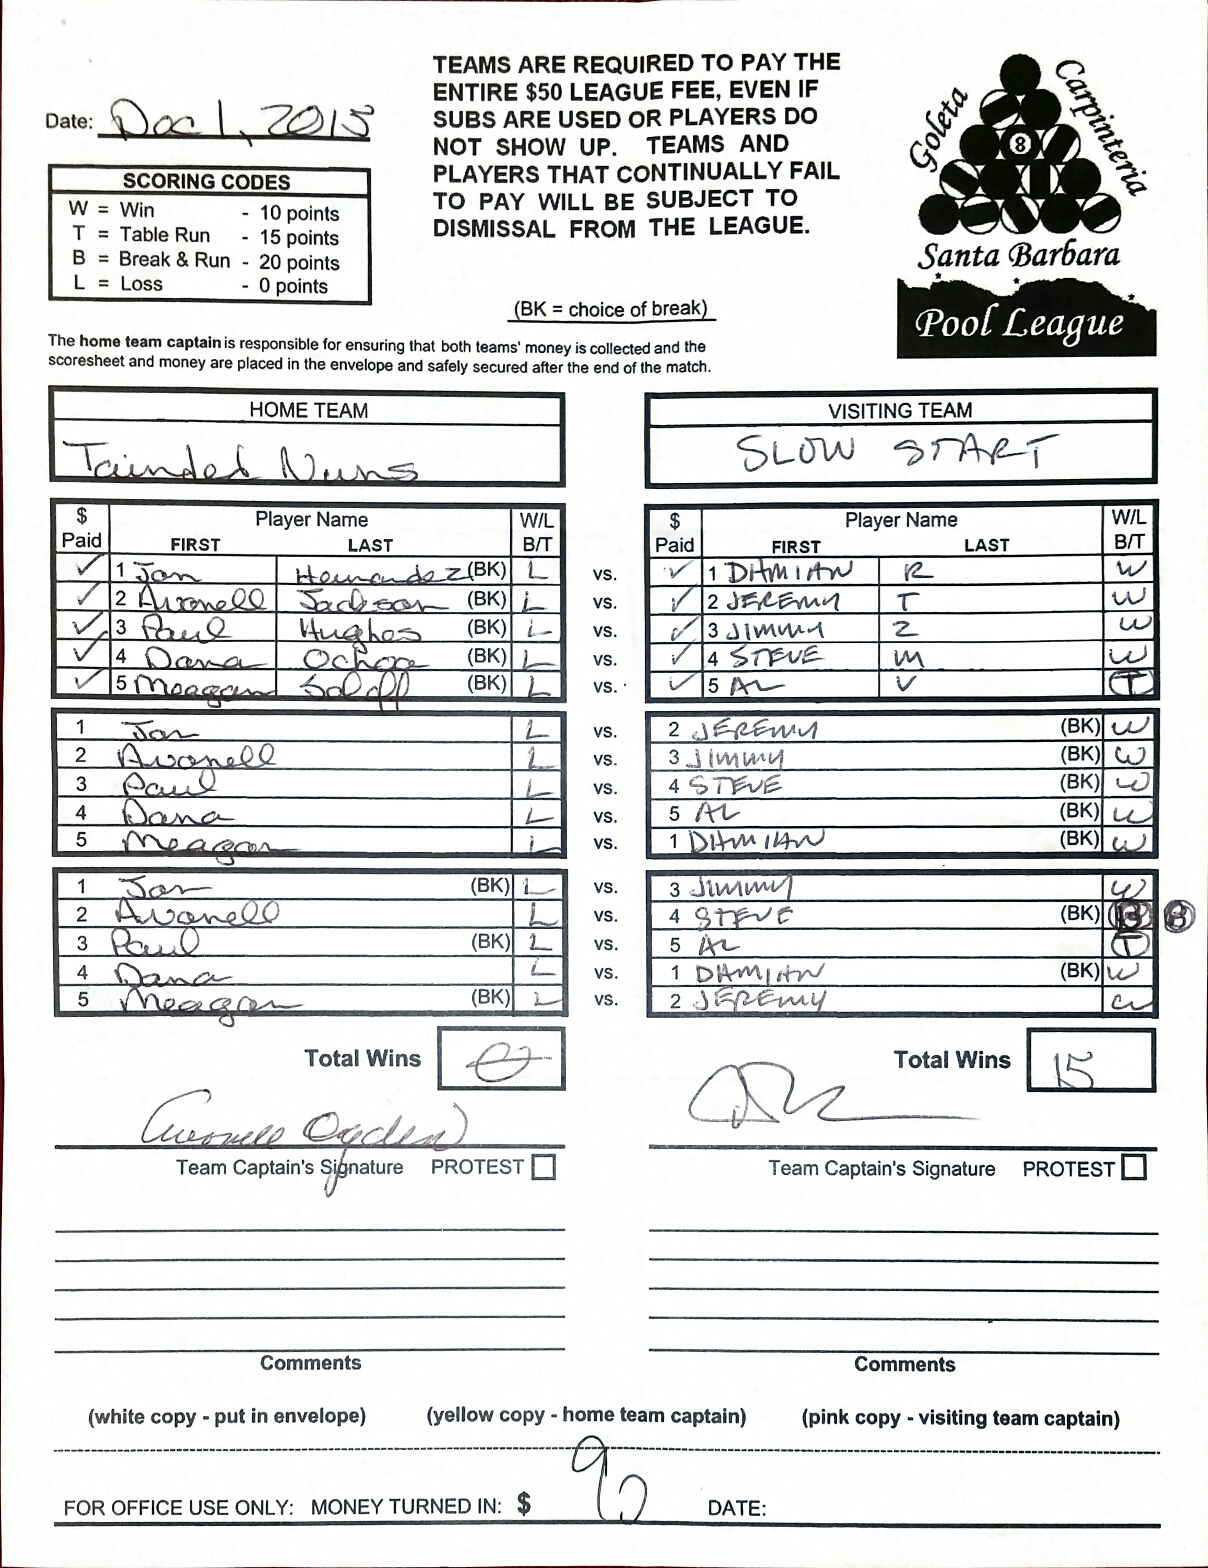 Date: Dec 1, 2015
TEAMS ARE REQUIRED TO PAY THE
ENTIRE $50 LEAGUE FEE, EVEN IF
SUBS ARE USED OR PLAYERS DO
NOT SHOW UP. TEAMS AND
PLAYERS THAT CONTINUALLY FAIL
TO PAY WILL BE SUBJECT TO
DISMISSAL FROM THE LEAGUE.
Goleta
Carpinteria
8
Santa Barbara
Pool League
SCORING CODES
W = Win - 10 points
T = Table Run - 15 points
B = Break & Run - 20 points
L = Loss - 0 points
(BK = choice of break)
The home team captain is responsible for ensuring that both teams' money is collected and the
scoresheet and money are placed in the envelope and safely secured after the end of the match.
HOME TEAM VISITING TEAM
Tainded Nuns SLOW START
$ Paid Player Name FIRST LAST W/L B/T $ Paid Player Name FIRST LAST W/L B/T
✓ 1 Jan Hernandez (BK) L vs. ✓ 1 DAMIAN R W
✓ 2 Avonell Jackson (BK) L vs. ✓ 2 JEREMY T W
✓ 3 Paul Hughes (BK) L vs. ✓ 3 JIMMY Z W
✓ 4 Dana Ochoa (BK) L vs. ✓ 4 STEVE M W
✓ 5 Meagan (BK) L vs. ✓ 5 AL V T
1 Jan L vs. 2 JEREMY (BK) W
2 Avonell L vs. 3 JIMMY (BK) W
3 Paul L vs. 4 STEVE (BK) W
4 Dana L vs. 5 AL (BK) W
5 Meagan L vs. 1 DAMIAN (BK) W
1 Jan (BK) L vs. 3 JIMMY W
2 Avonell L vs. 4 STEVE (BK) B B
3 Paul (BK) L vs. 5 AL T
4 Dana L vs. 1 DAMIAN (BK) W
5 Meagan (BK) L vs. 2 JEREMY W
Total Wins 0 Total Wins 15
Avonell Ogden
Team Captain's Signature PROTEST Team Captain's Signature PROTEST
Comments Comments
(white copy - put in envelope) (yellow copy - home team captain) (pink copy - visiting team captain)
FOR OFFICE USE ONLY: MONEY TURNED IN: $ 90 DATE: